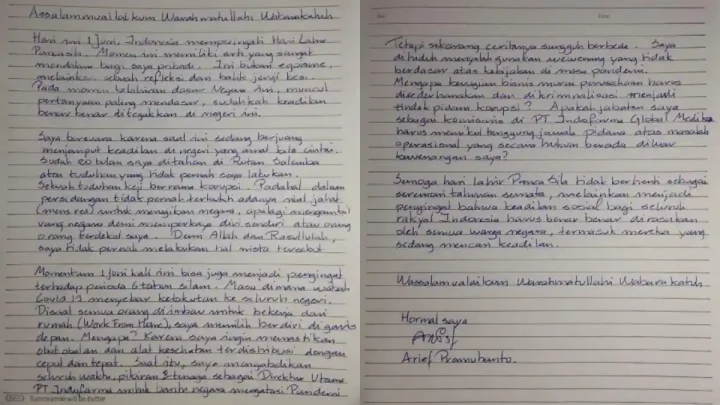 Assalammualaikum Warahmatullahi Wabarakatuh
Hari ini 1 Juni, Indonesia memperingati Hari Lahir
Pancasila. Momen ini memiliki arti yang sangat
mendalam bagi saya pribadi. Ini bukan egoisme,
melainkan sebuah refleksi dari balik jeruji besi.
Pada momen kelahiran dasar Negara ini, muncul
pertanyaan paling mendasar, sudahkah keadilan
benar benar ditegakkan di negeri ini.
Saya bersuara karena saat ini sedang berjuang
menjemput keadilan di negeri yang amat kita cintai.
Sudah 20 bulan saya ditahan di Rutan Salemba
atas tuduhan yang tidak pernah saya lakukan.
Sebuah tuduhan keji bernama korupsi. Padahal dalam
persidangan tidak pernah terbukti adanya niat jahat
(mens rea) untuk merugikan negara, apalagi mengambil
uang negara demi memperkaya diri sendiri atau orang
orang terdekat saya. Demi Allah dan Rasulullah,
saya tidak pernah melakukan hal nista tersebut
Momentum 1 Juni kali ini bisa juga menjadi pengingat
terhadap periode 6 tahun silam. Masa dimana wabah
Covid 19 menyebar ketakutan ke seluruh negeri.
Disaat semua orang di imbau untuk bekerja dari
rumah (Work From Home), saya memilih berdiri di garis
depan. Mengapa? Karena saya ingin memastikan
obat obatan dan alat kesehatan terdistribusi dengan
cepat dan tepat. Saat itu, saya mengabdikan
seluruh waktu, pikiran & tenaga sebagai Direktur Utama
PT Indofarma untuk bantu negara mengatasi Pandemi
Tetapi sekarang ceritanya sungguh berbeda. Saya
di tuduh menyalahgunakan wewenang yang tidak
berdasar atas kebijakan di masa pandemi.
Mengapa kerugian bisnis murni perusahaan harus
disederhanakan dan di kriminalisasi menjadi
tindak pidana korupsi? Apakah jabatan saya
sebagai komisaris di PT Indofarma Global Medika
harus memikul tanggung jawab pidana atas masalah
operasional yang secara hukum berada diluar
kewenangan saya?
Semoga hari lahir Pancasila tidak berhenti sebagai
seremoni tahunan semata, melainkan menjadi
pengingat bahwa keadilan sosial bagi seluruh
rakyat Indonesia harus benar benar dirasakan
oleh semua warga negara, termasuk mereka yang
sedang mencari keadilan.
Wassalamualaikum Warahmatullahi Wabarakatuh.
Hormat saya
Arief Pramuhanto.